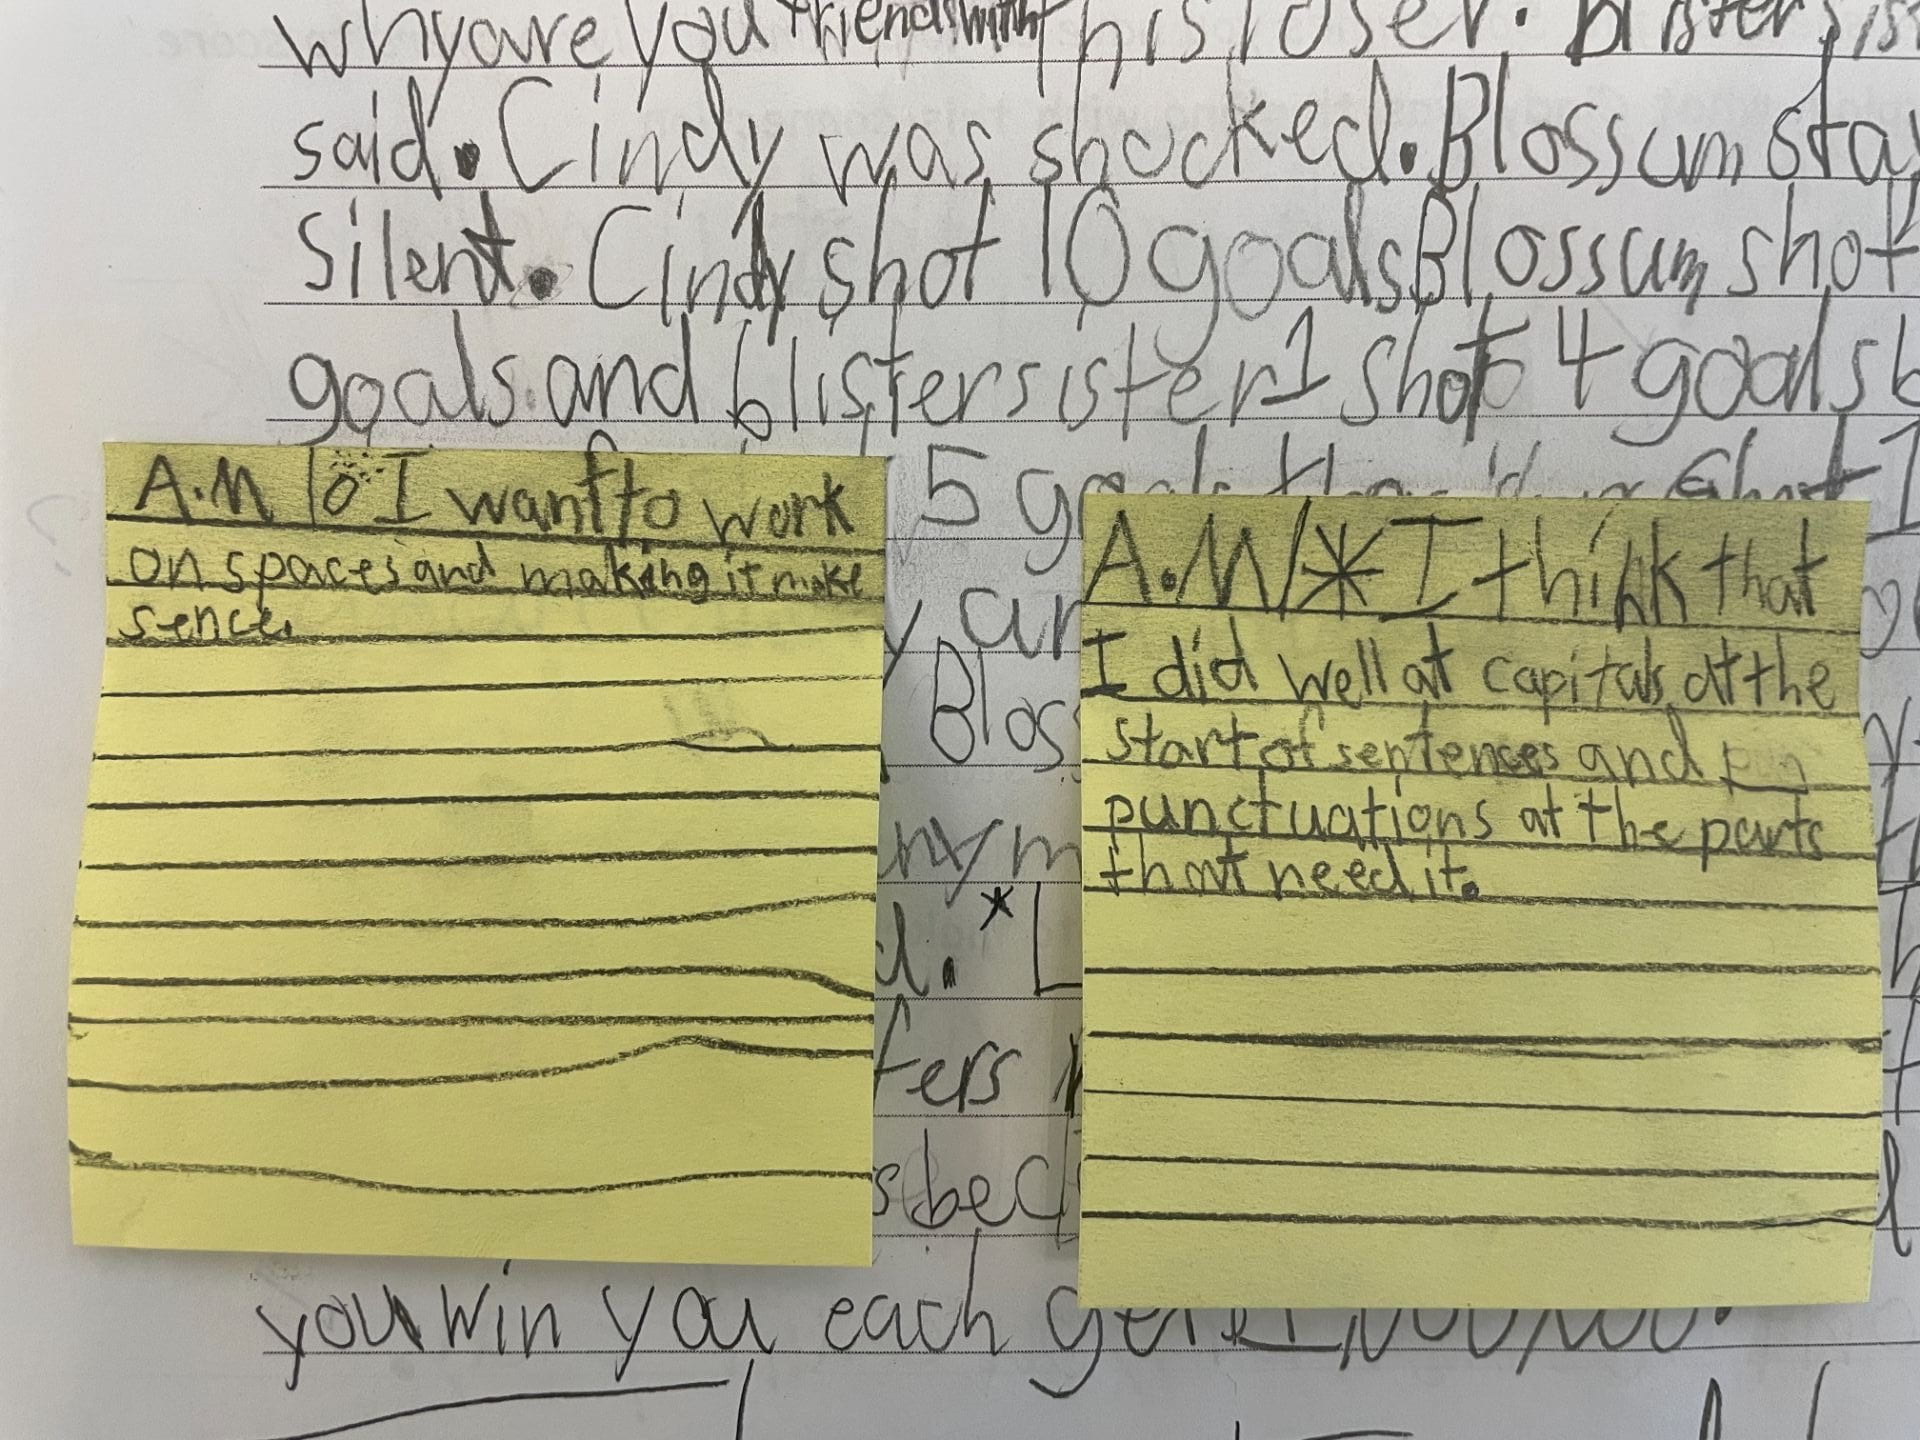 why are you friends with this loser. Blister sist
said. Cindy was shocked. Blossum stay
Silent. Cindy shot 10 goals Blossum shot
goals and blister sister 1 shot 4 goals b
5 g
y an
Blos
ny m
d. *L
fers
s bec
you win you each get
A.M I want to work
on spaces and making it make
sence.
A.M/* I think that
I did well at capitals at the
start of sentences and
punctuations at the parts
that need it.